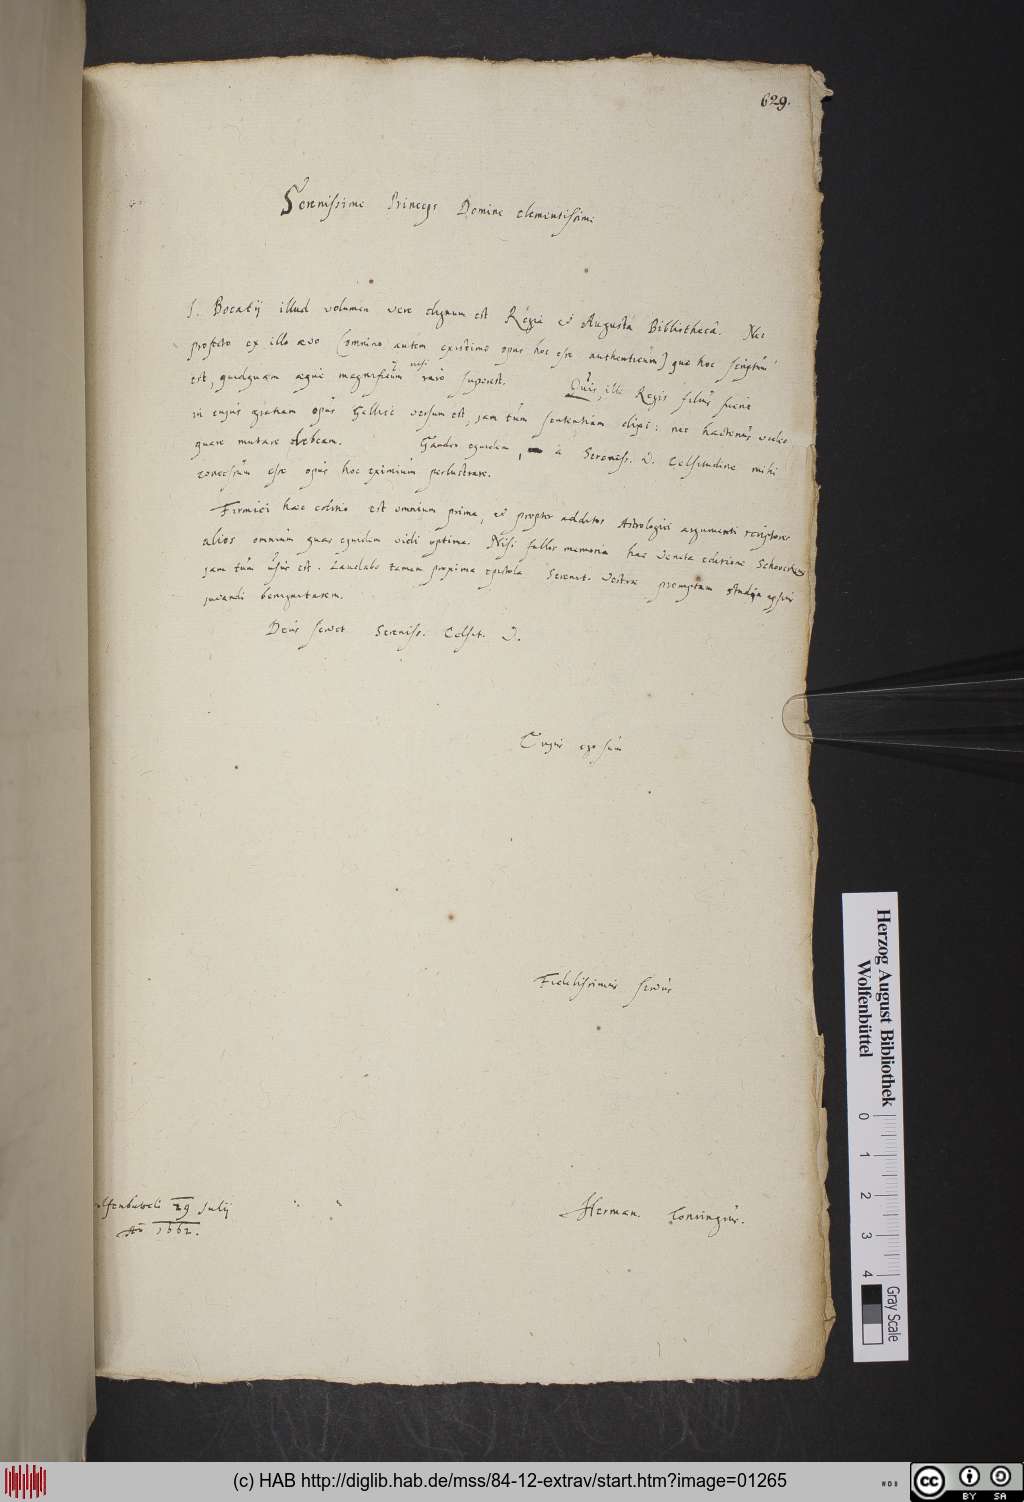 629.
Serenissime Princeps Domine clementissime
J. Bocatij illud volumen vere dignum est Regia et Augusta Bibliothecâ. Nec
profecto ex illo aevo (omnino autem existimo opus hoc esse authenticum) quo hoc scriptum
est, quidquam aeque magnificum nisi raro superest. Quis ille Regis filius fuerit
in cujus gratiam opus Gallice versum est, jam tum sententiam dixi: nec hactenus video
quare mutare debeam. Gaudeo equidem, à Sereniss. V. Celsitudine mihi
concessum esse opus hoc eximium perlustrare.
Firmici haec editio est omnium prima, et propter additos Astrologici argumenti scriptores
alios omnium quas equidem vidi optima. Nisi fallor memoria hac Veneta editione
jam tum usus est. Laudabo tamen proxima epistola Serenit. Vestrae promptam studia
juvandi benignitatem.
Deus servet Sereniss. Celsit. V.
Cujus ego sum
Fidelissimus servus
29 Julij
Herman. Conringius.
Aõ 1662.
Herzog August Bibliothek
Wolfenbüttel
0 1 2 3 4
Gray Scale
(c) HAB http://diglib.hab.de/mss/84-12-extrav/start.htm?image=01265
cc BY SA